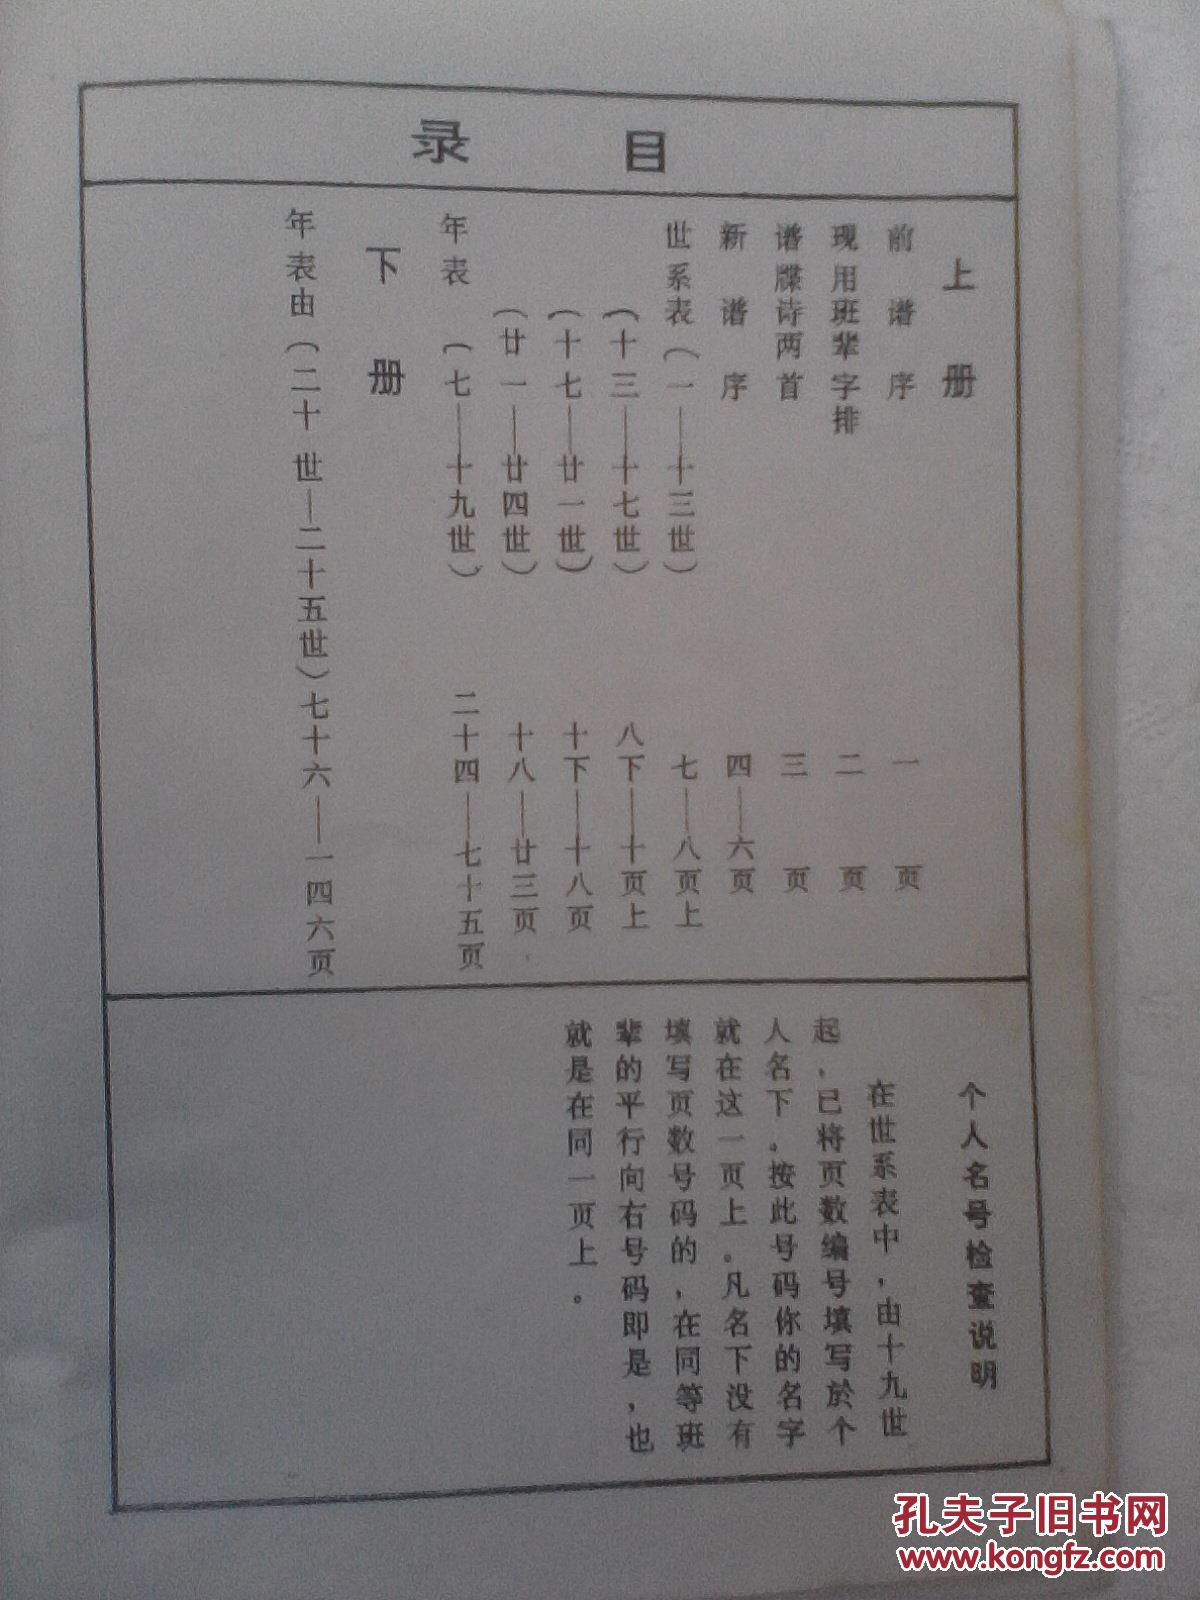 目录
上册
前谱序 一页
现用班辈字排 二页
谱牒诗两首 三页
新谱序 四——六页
世系表(一——十三世) 七——八页上
(十三——十七世) 八下——十页上
(十七——廿一世) 十下——十八页
(廿一——廿四世) 十八——廿三页
年表(七——十九世) 二十四——七十五页
下册
年表由(二十世—二十五世)七十六——一四六页
个人名号检查说明
在世系表中,由十九世
起,已将页数编号填写於个
人名下。按此号码你的名字
就在这一页上。凡名下没有
填写页数号码的,在同等班
辈的平行向右号码即是,也
就是在同一页上。
孔夫子旧书网
www.kongfz.com